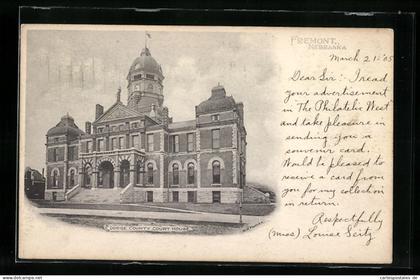 FREMONT,
NEBRASKA
March 2 1 '05
Dear Sir:- I read
your advertisement
in The Philatelic West
and take pleasure in
sending you a
souvenir card.
Would be pleased to
receive a card from
you for my collection
in return.
Respectfully
(Miss) Louisa Seitz
DODGE COUNTY COURT HOUSE
oldthing